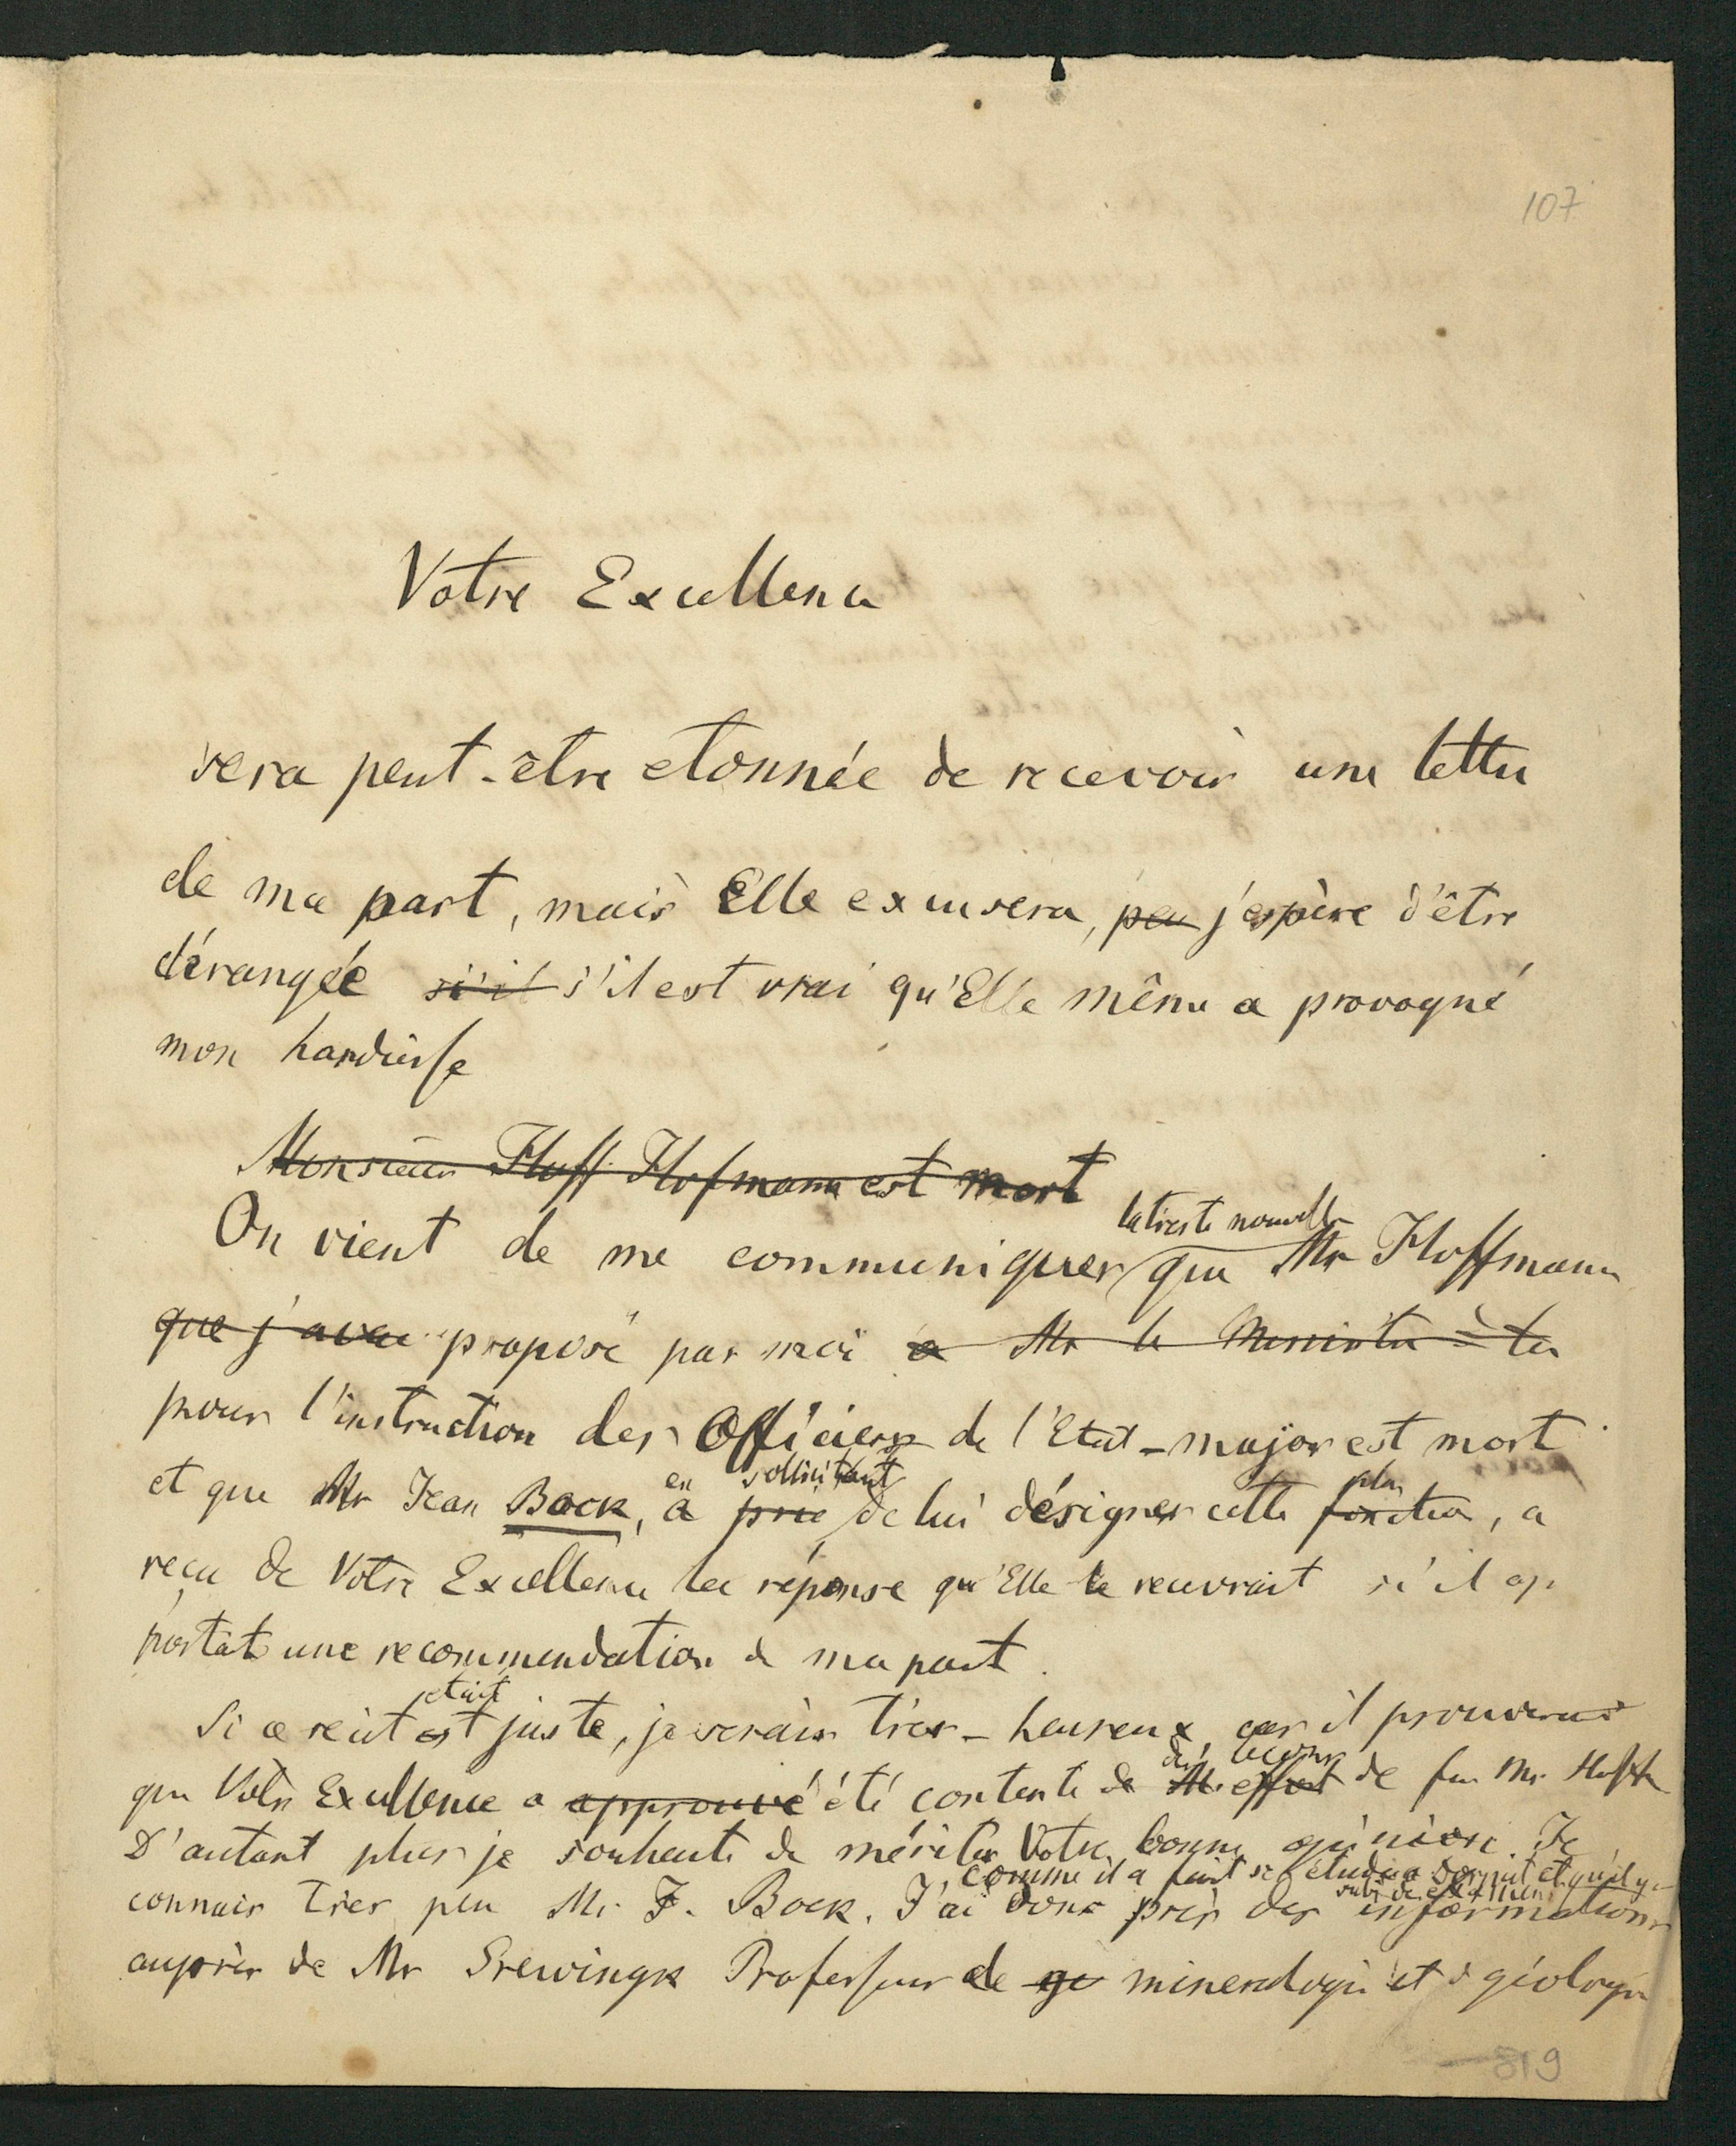 107
Votre Excellence
sera peut-être etonnée de recevoir une lettre
de ma part, mais Elle excusera, peu j'espère d'être
dérangée si'il s'il est vrai qu'Elle même a provoqué
mon hardiesse
Monsieur Hoff Hofmann est mort
la triste nouvelle
On vient de me communiquer que Mr Hoffmann
que j'avai proposé par moi a Mr le Ministre
pour l'instruction des Officiers de l'Etat-major est mort
en sollicitant
et que Mr Jean Bock, a prié de lui désigner cette fonction, a
reçu de Votre Excellence la réponse qu'Elle le recevrait s'il ap
portat une recommendation de ma part.
etait
Si ce récit est juste, je serais très-heureux, car il prouverait
des leçons
que Votre Excellence a approuvé été contente de effort de feu Mr Hoffm
D'autant plus je souhaite de mériter Votre bonne opinion. Je
comme il a fait ses études a Dorpat et qu'il y a
subi des examens
connais très peu Mr J. Bock. J'ai donc pris des informations
auprès de Mr Grewingk Professeur de ge mineralogie et de géologie
819